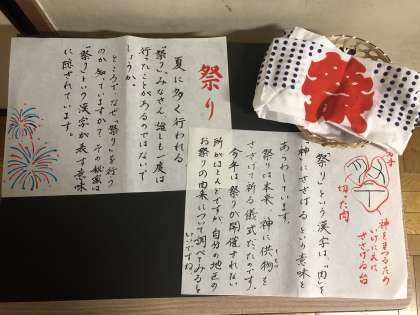 祭り
夏に多く行われる
「祭り」、みなさん 誰しも一度は
行ったことがあるのではないで
しょうか。
ところで、なぜ、祭りを行う
のか知っていますか？その秘密は
「祭り」という漢字が表す意味
に隠されています。
「祭り」という漢字は、「肉」を
神にささげるという意味を
あらわしています。
祭りは本来、神に供物を
ささげて祈る儀式だったのです。
今年は祭りが開催されない
所がほとんどですが、自分の地区の
お祭りの由来について調べてみると
いいですね。
切った肉
神をまつるための
いけにえを
ささげる台
祭